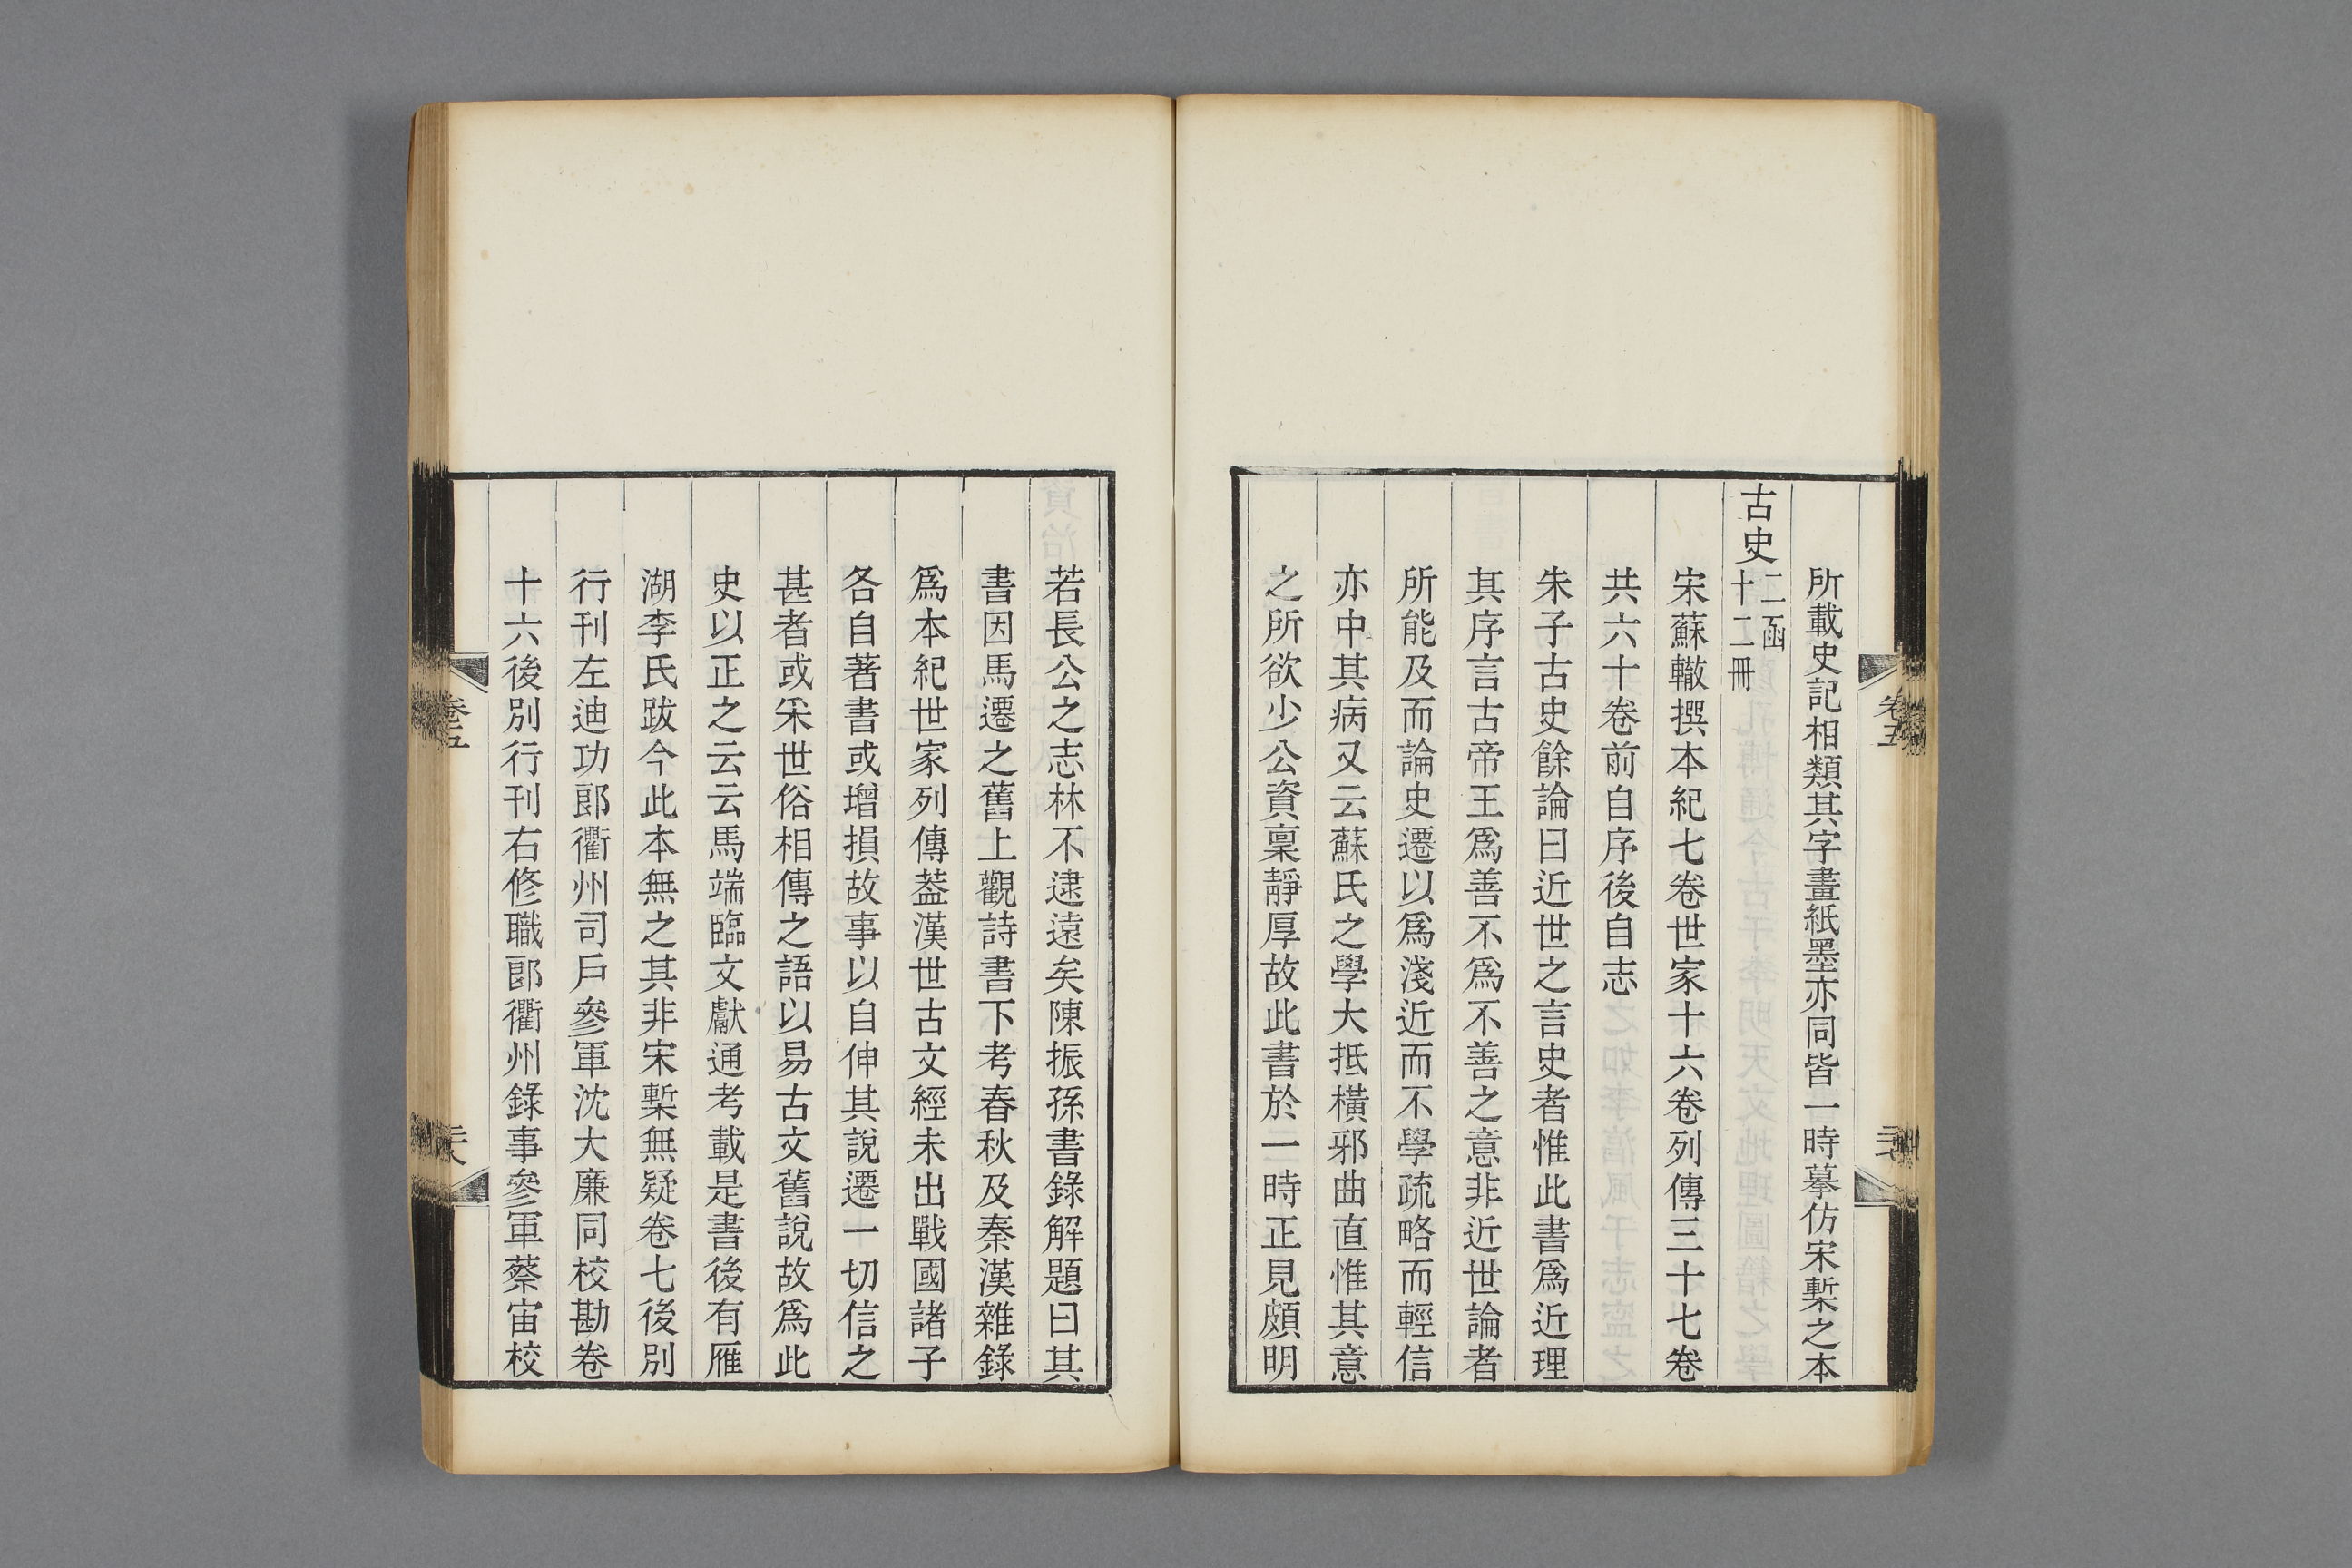 所載史記相類其字畫紙墨亦同皆一時摹仿宋槧之本
古史
二函
十二冊
宋蘇轍撰本紀七卷世家十六卷列傳三十七卷
共六十卷前自序後自志
朱子古史餘論曰近世之言史者惟此書爲近理
其序言古帝王爲善不爲不善之意非近世論者
所能及而論史遷以爲淺近而不學疏略而輕信
亦中其病又云蘇氏之學大抵橫邪曲直惟其意
之所欲少公資稟靜厚故此書於一時正見頗明
若長公之志林不逮遠矣陳振孫書錄解題曰其
書因馬遷之舊上觀詩書下考春秋及秦漢雜錄
爲本紀世家列傳葢漢世古文經未出戰國諸子
各自著書或增損故事以自伸其說遷一切信之
甚者或采世俗相傳之語以易古文舊說故爲此
史以正之云云馬端臨文獻通考載是書後有雁
湖李氏跋今此本無之其非宋槧無疑卷七後別
行刊左迪功郞衢州司戶參軍沈大廉同校勘卷
十六後別行刊右修職郞衢州錄事參軍蔡宙校
卷五
卷五